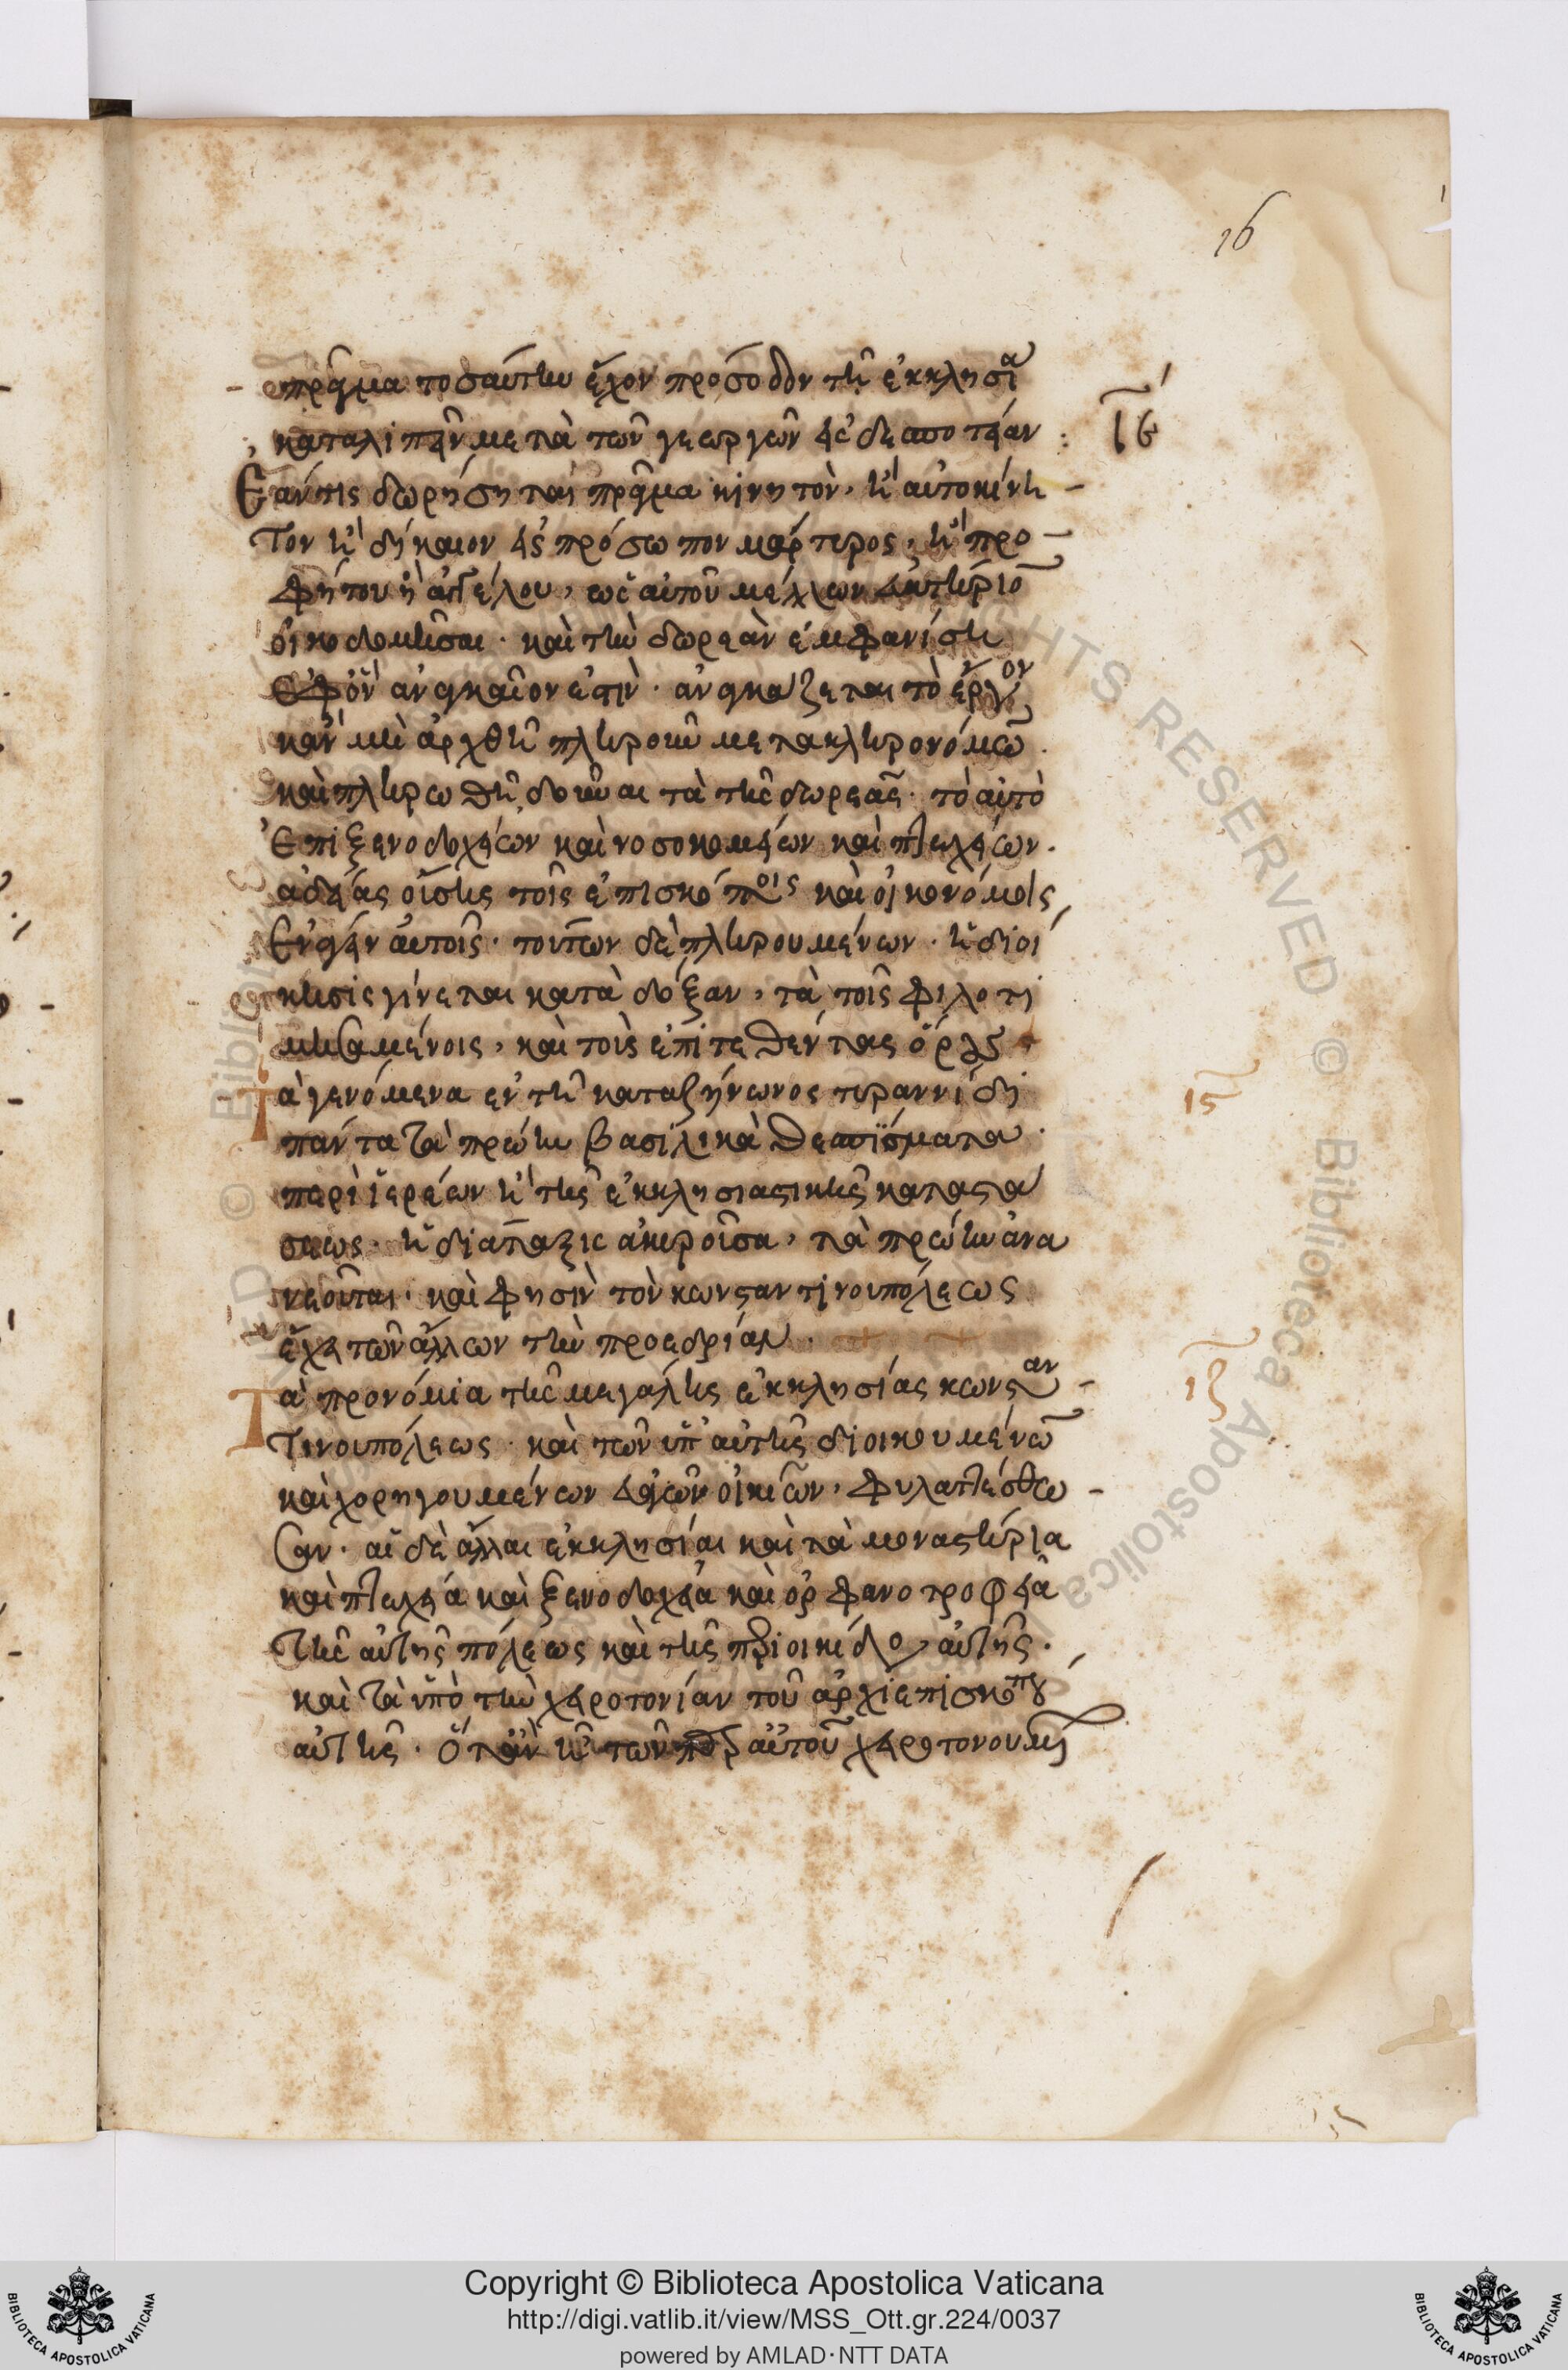 16
πρᾶγμα τοσαύτην ἔχον πρόσοδον τῆ ἐκκλησία
καταλιπεῖν μετὰ τῶν γεωργῶν εἰς δεσποτείαν : ιε
Ἐάν τις δωρήσηται πρᾶγμα κινητὸν, ἢ αὐτοκίνη
τον ἢ δίκαιον εἰς πρόσωπον μάρτυρος, ἢ προ
φήτου ἢ ἀγγέλου, ὡς αὐτοῦ μέλλων εὐκτήριο
οἰκοδομῆσαι. καὶ τὴν δωρεὰν ἐμφανίση
ἐφ' ὃν ἀναγκαῖον ἐστὶν. ἀναγκάζεται τὸ ἔργον
κἂν μὴ ἀρχθῆ πληροῦν μετὰ κληρονόμω.
καὶ πληρωθῆ, δοῦναι τὰ τῆς δωρεᾶς. τὸ αὐτὸ
ἐπὶ ξενοδοχείων καὶ νοσοκομείων καὶ πτωχείων.
ἀδείας οὔσης τοῖς ἐπισκόποις καὶ οἰκονόμοις
ἐνάγειν αὐτοῖς. τούτων δὲ πληρουμένων. ἡ διοί
κησις γίνεται κατὰ δόξαν, τὰ τοῖς φιλοτι
μησαμένοις, καὶ τοὺς ἐπιτεθέντας ὅρους
Τὰ γενόμενα ἐν τῆ κατὰ ζήνωνος τυραννίδι ις
πάντα τὰ πρώην βασιλικὰ θεσπίσματα.
περὶ ἱερέων ἢ τῆς ἐκκλησιαστικῆς καταστά
σεως. ἡ διάταξις ἀκυροῦσα, τὰ πρώην ἀνα
νεοῦται. καὶ φησὶν τὸν κωνσταντινουπόλεως
ἔχει τῶν ἄλλων τὴν προεδρίαν.
Τὰ προνόμια τῆς μεγάλης ἐκκλησίας κωνσταν ιζ
τινουπόλεως. καὶ τῶν ὑπ' αὐτῆς διοικουμένω
καὶ χορηγουμένων εὐαγῶν οἰκίων, φυλαττέσθω
σαν. αἱ δὲ ἄλλαι ἐκκλησίαι καὶ τὰ μοναστήρια
καὶ πτωχεῖα καὶ ξενοδοχεῖα καὶ ὀρφανοτροφεῖα
τῆς αὐτῆς πόλεως καὶ τῆς περιοικίδο αὐτῆς.
καὶ τὰ ὑπὸ τὴν χειροτονίαν τοῦ ἀρχιεπισκόπου
αὐτῆς. ὅταν ἢ τῶν παρ' αὐτοῦ χειροτονουμ
Copyright © Biblioteca Apostolica Vaticana
http://digi.vatlib.it/view/MSS_Ott.gr.224/0037
powered by AMLAD·NTT DATA